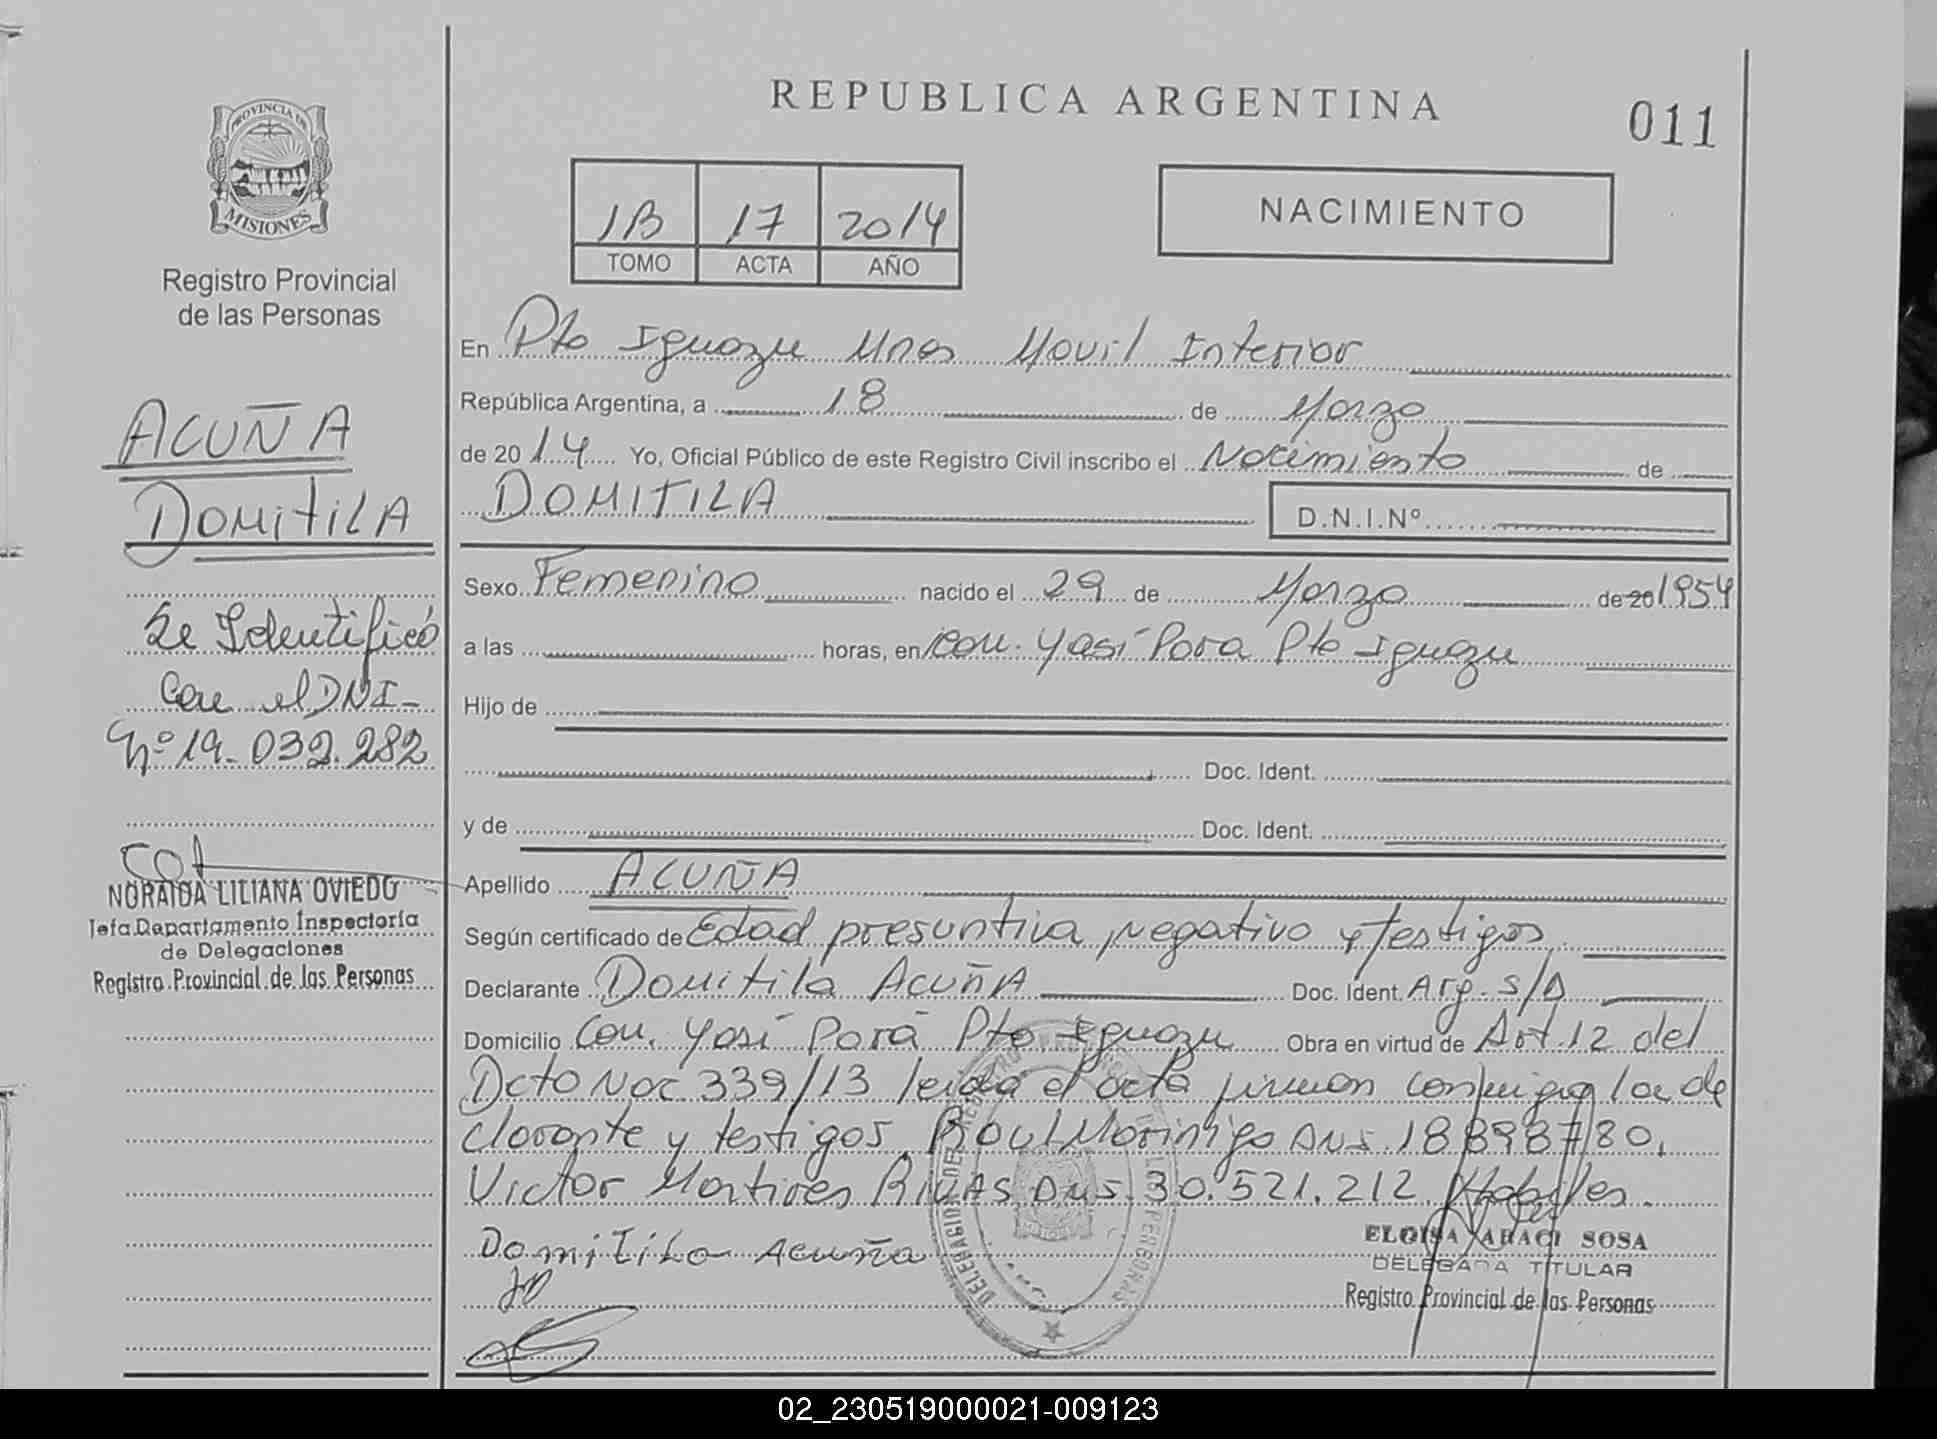 REPUBLICA ARGENTINA
011
PROVINCIA DE
MISIONES
Registro Provincial
de las Personas
1B 17 2014
TOMO ACTA AÑO
NACIMIENTO
ACUÑA
DOMITILA
Se Identificó
Con el DNI-
Nº 19.032.282
NORAIDA LILIANA OVIEDO
Jefa Departamento Inspectoría
de Delegaciones
Registro Provincial de las Personas
En Pto Iguazu Unas Movil Interior
República Argentina, a 18 de Marzo
de 2014 Yo, Oficial Público de este Registro Civil inscribo el Nacimiento de
DOMITILA D.N.I.Nº
Sexo Femenino nacido el 29 de Marzo de 20 1954
a las horas, en Com. Yasí Pora Pto Iguazu
Hijo de
Doc. Ident.
y de Doc. Ident.
Apellido ACUÑA
Según certificado de Edad presuntiva, negativo y testigos
Declarante Domitila ACUÑA Doc. Ident. Arg. S/D
Domicilio Com. Yasí Porá Pto Iguazu Obra en virtud de Art. 12 del
Dcto Nac. 339/13 leida el acta firman conmigo la de
clarante y testigos Raul Morinigo DNI. 18898780,
Victor Martires RIVAS DNI. 30.521.212 Habiles.
Domitila Acuña
ELOISA ARACI SOSA
DELEGADA TITULAR
Registro Provincial de las Personas
02_230519000021-009123